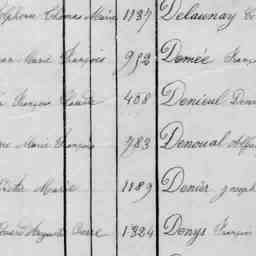 Thomas Marie 1137 Delaunay
Marie François 952 Demée Franç
François Claude 408 Denieul
Marie François 783 Denoual Alfr
Victor Marie 1189 Denier Joseph
Edouard Auguste Pierre 1324 Denys François